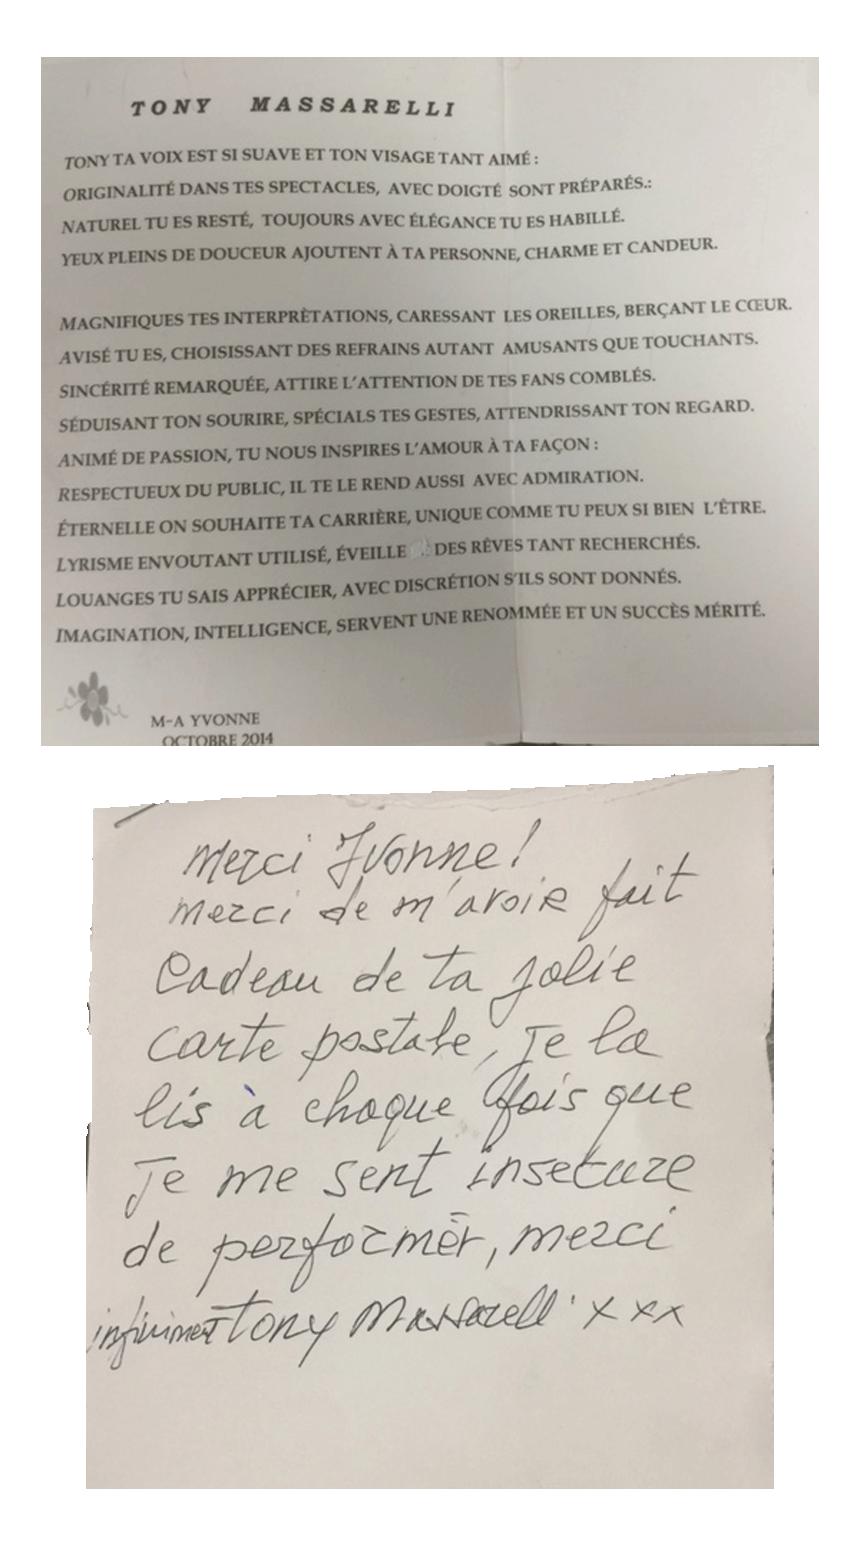 TONY MASSARELLI
TONY TA VOIX EST SI SUAVE ET TON VISAGE TANT AIMÉ :
ORIGINALITÉ DANS TES SPECTACLES, AVEC DOIGTÉ SONT PRÉPARÉS.:
NATUREL TU ES RESTÉ, TOUJOURS AVEC ÉLÉGANCE TU ES HABILLÉ.
YEUX PLEINS DE DOUCEUR AJOUTENT À TA PERSONNE, CHARME ET CANDEUR.
MAGNIFIQUES TES INTERPRÈTATIONS, CARESSANT LES OREILLES, BERÇANT LE CŒUR.
AVISÉ TU ES, CHOISISSANT DES REFRAINS AUTANT AMUSANTS QUE TOUCHANTS.
SINCÉRITÉ REMARQUÉE, ATTIRE L'ATTENTION DE TES FANS COMBLÉS.
SÉDUISANT TON SOURIRE, SPÉCIALS TES GESTES, ATTENDRISSANT TON REGARD.
ANIMÉ DE PASSION, TU NOUS INSPIRES L'AMOUR À TA FAÇON :
RESPECTUEUX DU PUBLIC, IL TE LE REND AUSSI AVEC ADMIRATION.
ÉTERNELLE ON SOUHAITE TA CARRIÈRE, UNIQUE COMME TU PEUX SI BIEN L'ÊTRE.
LYRISME ENVOUTANT UTILISÉ, ÉVEILLE DES RÊVES TANT RECHERCHÉS.
LOUANGES TU SAIS APPRÉCIER, AVEC DISCRÉTION S'ILS SONT DONNÉS.
IMAGINATION, INTELLIGENCE, SERVENT UNE RENOMMÉE ET UN SUCCÈS MÉRITÉ.
M-A YVONNE
OCTOBRE 2014
Merci Yvonne!
merci de m'avoir fait
Cadeau de ta jolie
carte postale, je la
lis à chaque fois que
je me sent insecure
de performér, merci
infiniment Tony Massarelli xxx